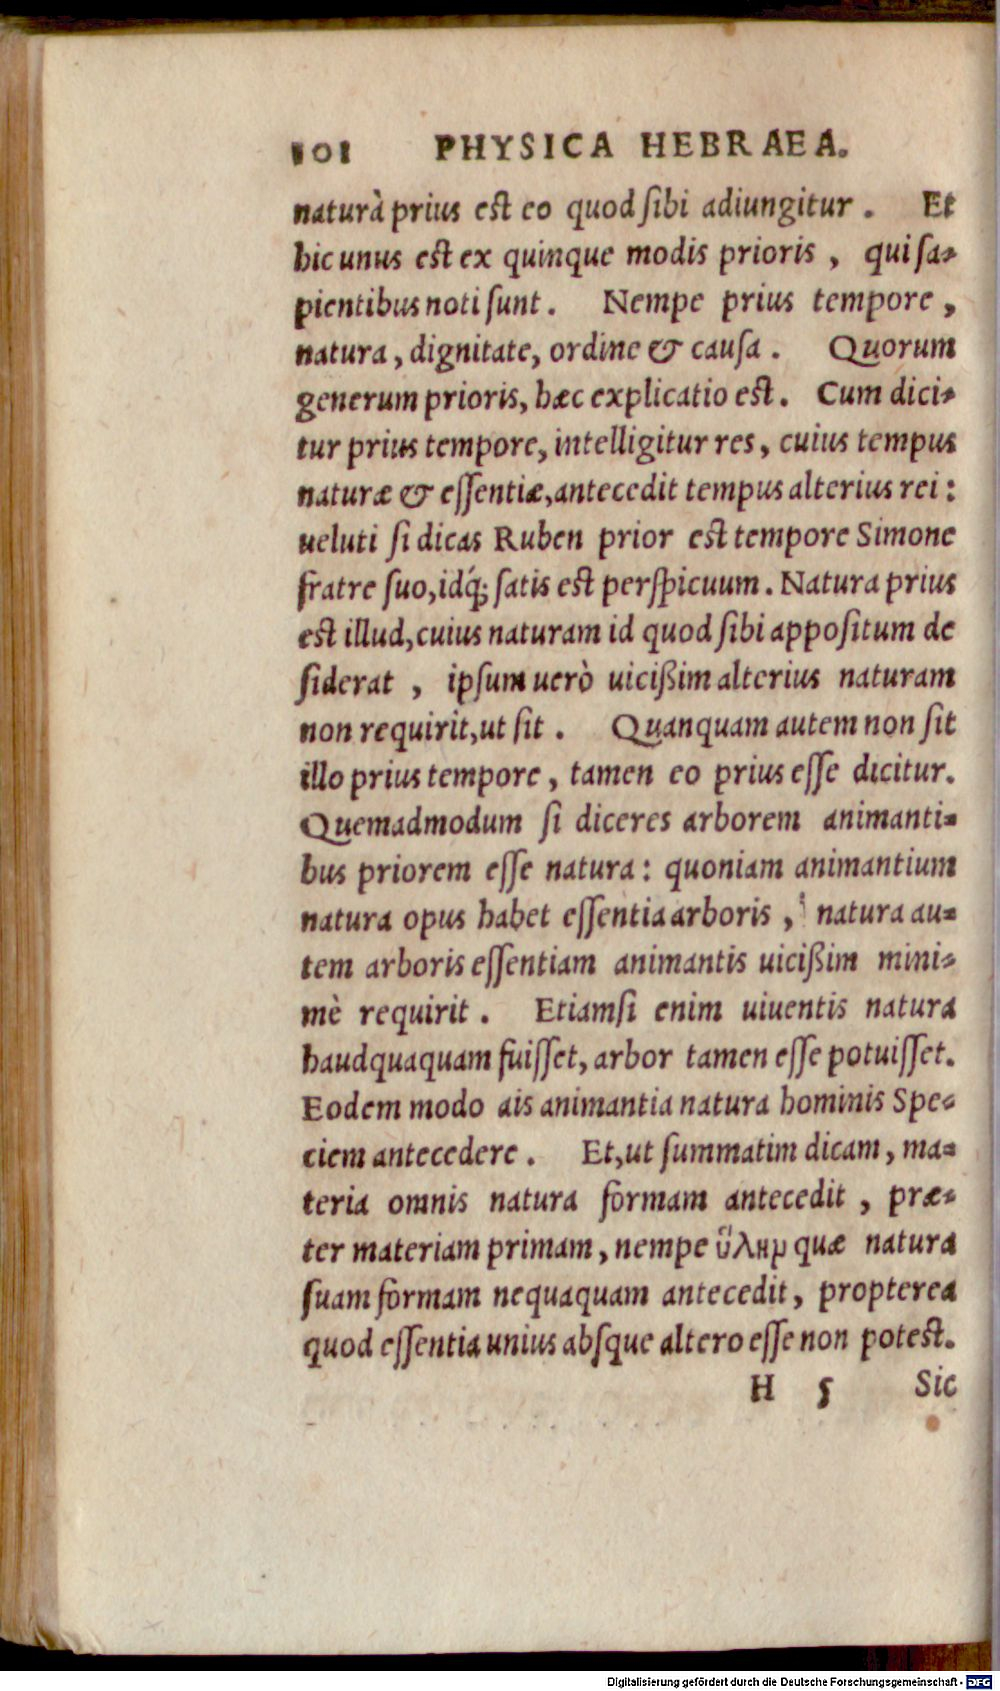 101 PHYSICA HEBRAEA.
naturà prius est eo quod sibi adiungitur. Et
hic unus est ex quinque modis prioris, qui sa-
pientibus noti sunt. Nempe prius tempore,
natura, dignitate, ordine & causa. Quorum
generum prioris, hæc explicatio est. Cum dici-
tur prius tempore, intelligitur res, cuius tempus
naturæ & essentiæ, antecedit tempus alterius rei:
ueluti si dicas Ruben prior est tempore Simone
fratre suo, idq́; satis est perspicuum. Natura prius
est illud, cuius naturam id quod sibi appositum de
siderat, ipsum uerò uicißim alterius naturam
non requirit, ut sit. Quanquam autem non sit
illo prius tempore, tamen eo prius esse dicitur.
Quemadmodum si diceres arborem animanti-
bus priorem esse natura: quoniam animantium
natura opus habet essentia arboris, natura au-
tem arboris essentiam animantis uicißim mini-
mè requirit. Etiamsi enim uiuentis natura
haudquaquam fuisset, arbor tamen esse potuisset.
Eodem modo ais animantia natura hominis Spe-
ciem antecedere. Et, ut summatim dicam, ma-
teria omnis natura formam antecedit, præ-
ter materiam primam, nempe ὕλην quæ natura
suam formam nequaquam antecedit, propterea
quod essentia unius absque altero esse non potest.
H 5 Sic
Digitalisierung gefördert durch die Deutsche Forschungsgemeinschaft - DFG